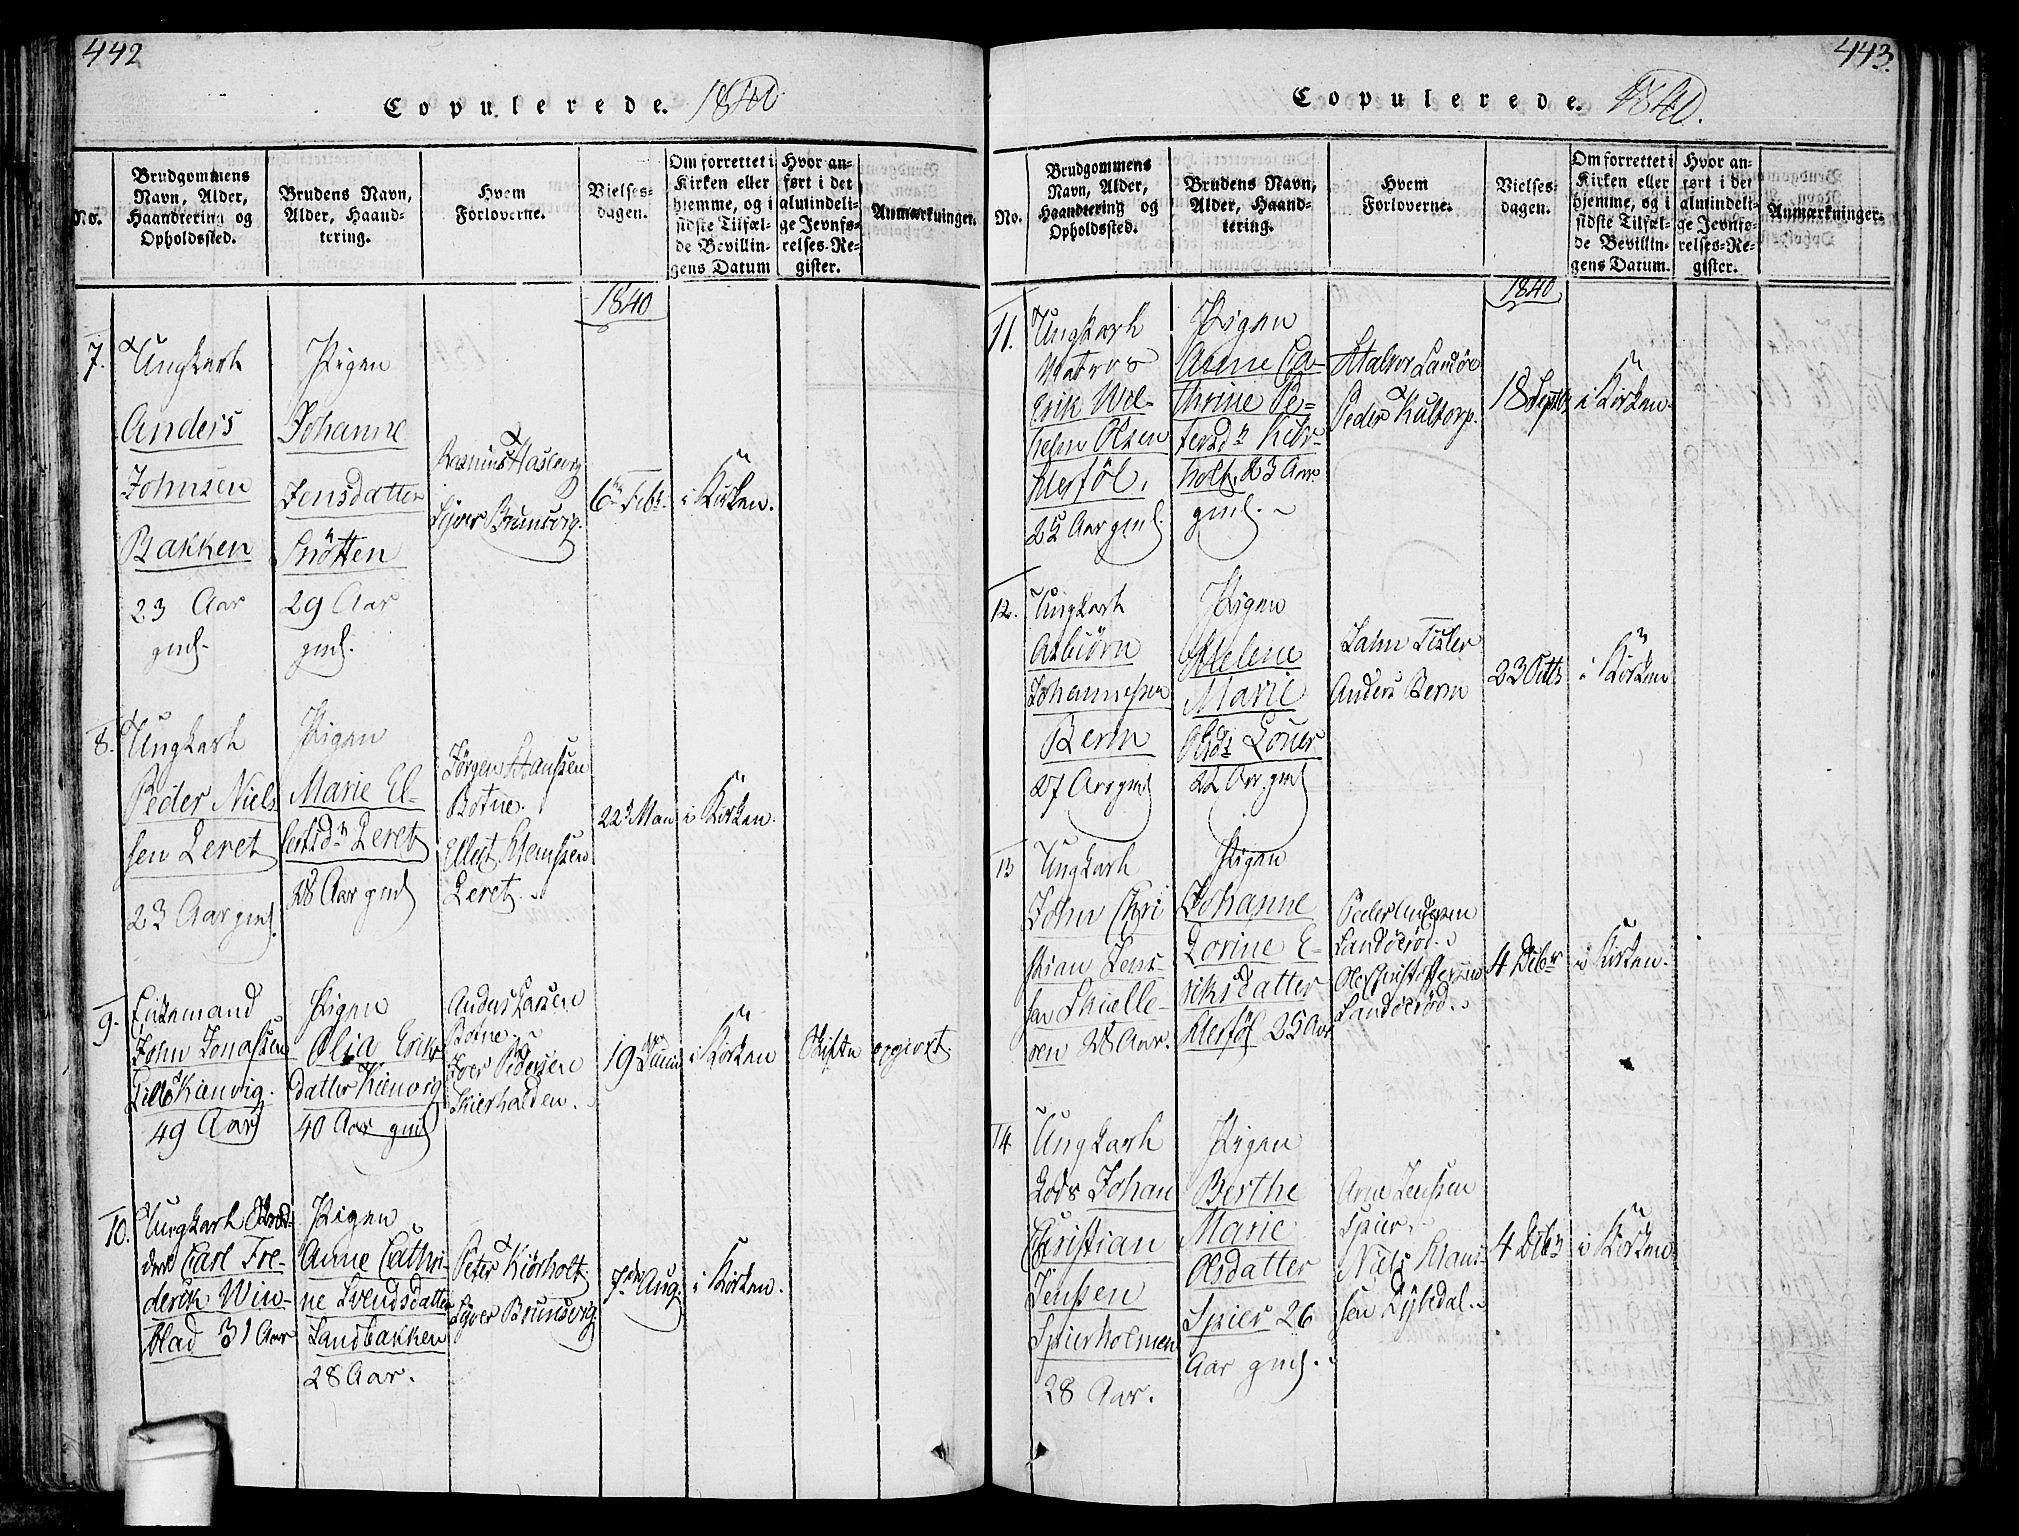 442
Copulerede. 1840
No.
Brudgommens
Navn, Alder,
Haandtering og
Opholdssted.
Brudens Navn,
Alder, Haand-
tering.
Hvem
Forloverne.
Vielses-
dagen.
Om forrettet i
Kirken eller
hjemme, og i
sidste Tilfæl-
de Bevillin-
gens Datum
Hvor an-
ført i det
almindeli-
ge Jevnfø-
relses-Re-
gister.
Anmærkninger.
1840
7.
Ungkarl
Anders
Johnsen
Bakken
23 Aar
gml.
Pigen
Johanne
Jensdatter
Snötten
29 Aar
gml.
Rasmus Hasberg
Syver Brunsvig.
6te Febr.
i Kirken.
8.
Ungkarl
Peder Niels
sen Leret
23 Aar gml.
Pigen
Marie El-
lertsdr Leret
28 Aar gml
Jörgen Haussen
Botne.
Ellert Klaussen
Leret.
22d Man
i Kirken.
9.
Enkemand
John Jonassen
Kienvig.
49 Aar
Pigen
Olia Eriks
datter Kienvig
40 Aar gml
Anders Larsen
Botne.
Iver Pedersen
Skierhalden.
19 Juni
i Kirken
Skiftn opgiort.
10.
Ungkarl
Carl Fre-
derik Win-
blad 31 Aar
Pigen
Anne Cathri-
ne Svendsdatter
Sandbakken
28 Aar.
Peter Kiörholt
Syver Brunsvig.
7de Aug.
i Kirken.
443.
Copulerede. 1840.
No.
Brudgommens
Navn, Alder,
Haandtering og
Opholdssted.
Brudens Navn,
Alder, Haand-
tering.
Hvem
Forloverne.
Vielses-
dagen.
Om forrettet i
Kirken eller
hjemme, og i
sidste Tilfæl-
de Bevillin-
gens Datum.
Hvor an-
ført i det
almindeli-
ge Jevnfø-
relses-Re-
gister.
Anmærkninger.
1840
11.
Ungkarl
Matros
Erik Wil-
helm Olsen
Herföl.
25 Aar gml.
Pigen
Anne Ca-
thrine Pe-
tersdr Kiör-
holt, 23 Aar
gml.
Halvor Sandöe
Peder Kultorp.
18 Septbr
i Kirken.
12.
Ungkarl
Asbiörn
Johannessen
Berm
27 Aar gml
Pigen
Helene
Marie
Olsdr Löuer
22 Aar gml
Lahn Tisler
Anders Berm
23 Octb
i Kirken
13
Ungkarl
John Chri
stian Jens-
sen Thielle-
ren 28 Aar.
Pigen
Johanne
Lorine E-
riksdatter
Herföl 25 Aar
Peder Andersen
Sandöeröd.
Ole Christoffersen
Sandöeröd.
4 Dcbr
i Kirken.
14
Ungkarl
Lods Johan
Christian
Jenssen
Spierholmen
28 Aar.
Pigen
Berthe
Marie
Olsdatter
Spier 26
Aar gml.
Arne Jenssen
Spier.
Niels Klaus-
sen Dybedal.
4 Dcbr
i Kirken